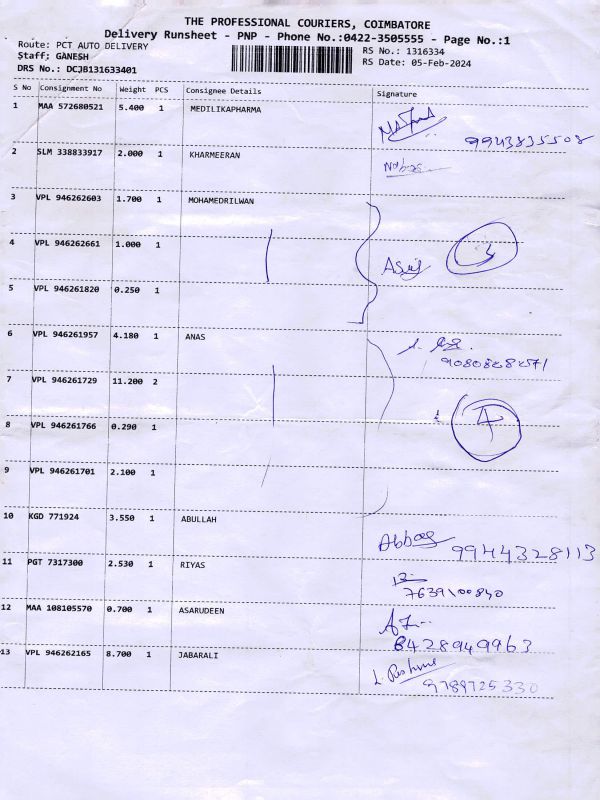 THE PROFESSIONAL COURIERS, COIMBATORE
Delivery Runsheet - PNP - Phone No.:0422-3505555 - Page No.:1
Route: PCT AUTO DELIVERY
RS No.: 1316334
Staff; GANESH
RS Date: 05-Feb-2024
DRS No.: DCJB131633401
S No Consignment No Weight PCS Consignee Details Signature
1 MAA 572680521 5.400 1 MEDILIKAPHARMA
9943835508
2 SLM 338833917 2.000 1 KHARMEERAN
3 VPL 946262603 1.700 1 MOHAMEDRILWAN
4 VPL 946262661 1.000 1
3
5 VPL 946261820 0.250 1
6 VPL 946261957 4.180 1 ANAS
9080828271
7 VPL 946261729 11.200 2
4
8 VPL 946261766 0.290 1
9 VPL 946261701 2.100 1
10 KGD 771924 3.550 1 ABULLAH
Abbas 9944328113
11 PGT 7317300 2.530 1 RIYAS
7639100840
12 MAA 108105570 0.700 1 ASARUDEEN
8428949963
13 VPL 946262165 8.700 1 JABARALI
9789725330